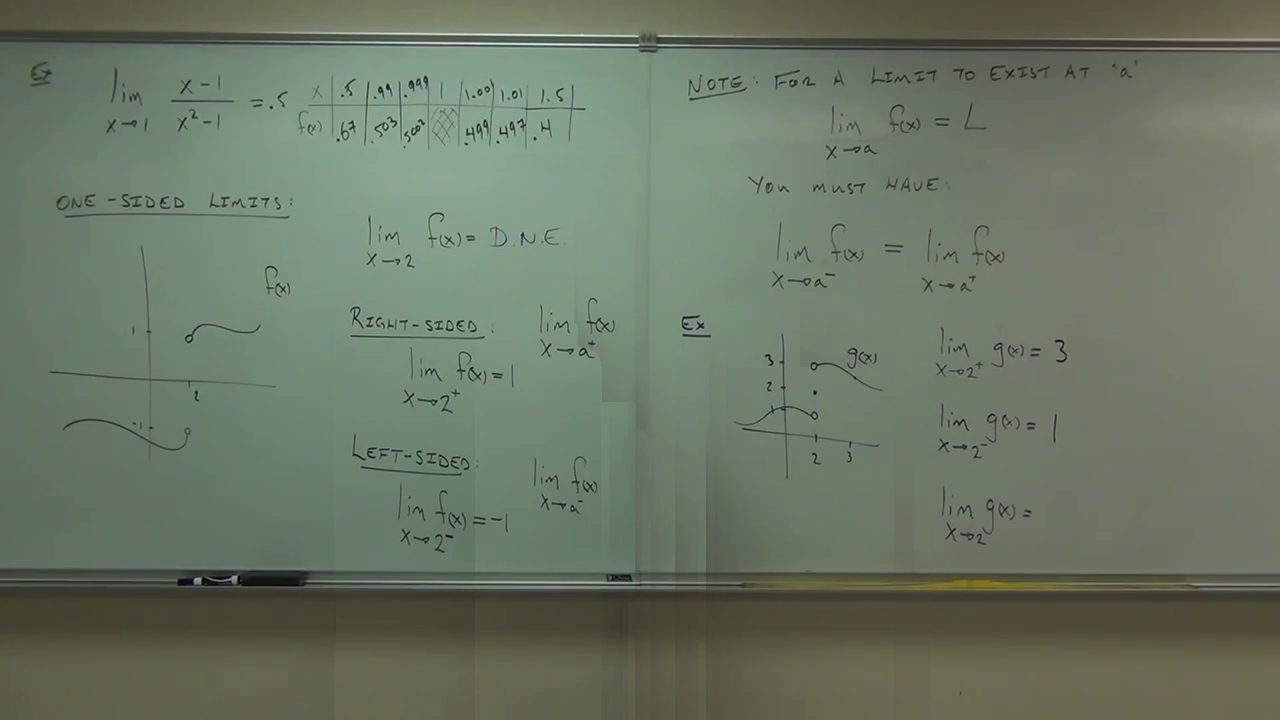 Ex
lim x→1 x-1 / x²-1 = .5
x | .5 | .99 | .999 | 1 | 1.00 | 1.01 | 1.5
f(x) | .67 | .503 | .5002 | | .499 | .497 | .4
ONE-SIDED LIMITS:
f(x)
1
2
-1
lim x→2 f(x) = D.N.E.
RIGHT-SIDED: lim x→a⁺ f(x)
lim x→2⁺ f(x) = 1
LEFT-SIDED: lim x→a⁻ f(x)
lim x→2⁻ f(x) = -1
NOTE: FOR A LIMIT TO EXIST AT "a"
lim x→a f(x) = L
YOU MUST HAVE:
lim x→a⁻ f(x) = lim x→a⁺ f(x)
Ex
g(x)
3
2
1
2 3
lim x→2⁺ g(x) = 3
lim x→2⁻ g(x) = 1
lim x→2 g(x) =